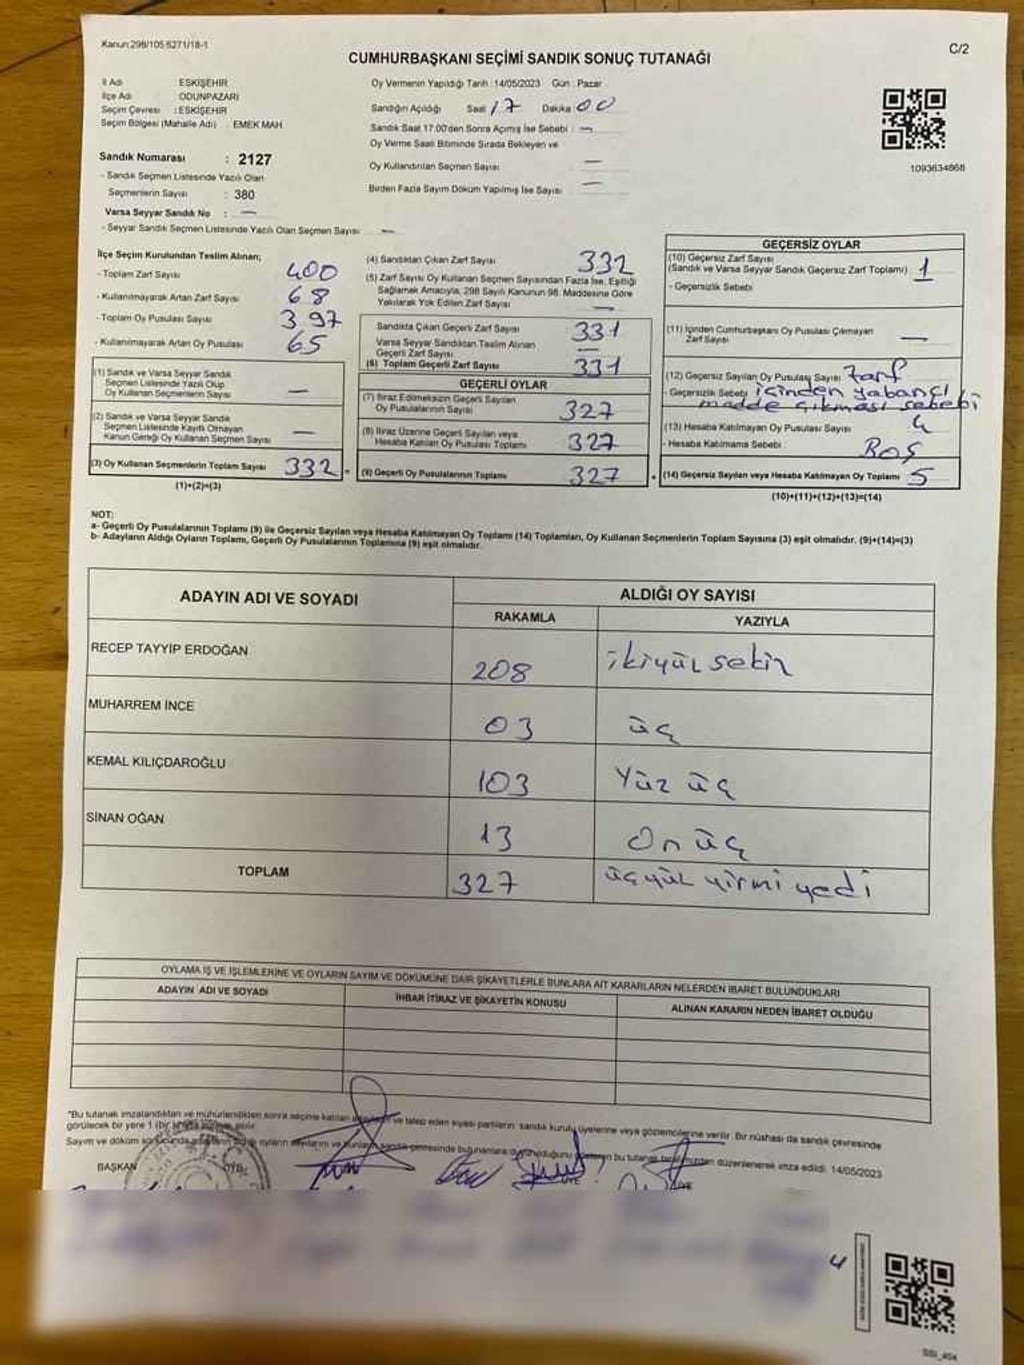 Kanun:298/105 5271/18-1
C/2
CUMHURBAŞKANI SEÇİMİ SANDIK SONUÇ TUTANAĞI
İl Adı ESKİŞEHİR
İlçe Adı ODUNPAZARI
Seçim Çevresi : ESKİŞEHİR
Seçim Bölgesi (Mahalle Adı) : EMEK MAH.
Sandık Numarası : 2127
- Sandık Seçmen Listesinde Yazılı Olan
Seçmenlerin Sayısı : 380
Varsa Seyyar Sandık No : —
- Seyyar Sandık Seçmen Listesinde Yazılı Olan Seçmen Sayısı —
Oy Vermenin Yapıldığı Tarih : 14/05/2023 Gün : Pazar
Sandığın Açıldığı Saat 17 Dakika 00
Sandık Saat 17.00'den Sonra Açılmış İse Sebebi : —
Oy Verme Saati Bitiminde Sırada Bekleyen ve
Oy Kullandırılan Seçmen Sayısı —
Birden Fazla Sayım Döküm Yapılmış İse Sayısı —
1093634868
İlçe Seçim Kurulundan Teslim Alınan;
- Toplam Zarf Sayısı 400
- Kullanılmayarak Artan Zarf Sayısı 68
- Toplam Oy Pusulası Sayısı 397
- Kullanılmayarak Artan Oy Pusulası 65
(1) Sandık ve Varsa Seyyar Sandık
Seçmen Listesinde Yazılı Olup
Oy Kullanan Seçmen Sayısı —
(2) Sandık ve Varsa Seyyar Sandık
Seçmen Listesinde Kayıtlı Olmayan
Kanun Gereği Oy Kullanan Seçmen Sayısı —
(3) Oy Kullanan Seçmenlerin Toplam Sayısı 332
(1)+(2)=(3)
(4) Sandıktan Çıkan Zarf Sayısı 332
(5) Zarf Sayısı Oy Kullanan Seçmen Sayısından Fazla İse, Eşitliği
Sağlamak Amacıyla, 298 Sayılı Kanunun 98. Maddesine Göre
Yakılarak Yok Edilen Zarf Sayısı —
Sandıkta Çıkan Geçerli Zarf Sayısı 331
Varsa Seyyar Sandıktan Teslim Alınan
Geçerli Zarf Sayısı —
(6) Toplam Geçerli Zarf Sayısı 331
GEÇERLİ OYLAR
(7) İtiraz Edilmeksizin Geçerli Sayılan
Oy Pusulalarının Sayısı 327
(8) İtiraz Üzerine Geçerli Sayılan veya
Hesaba Katılan Oy Pusulası Toplamı 327
(9) Geçerli Oy Pusulalarının Toplamı 327
GEÇERSİZ OYLAR
(10) Geçersiz Zarf Sayısı
(Sandık ve Varsa Seyyar Sandık Geçersiz Zarf Toplamı) 1
- Geçersizlik Sebebi
(11) İçinden Cumhurbaşkanı Oy Pusulası Çıkmayan
Zarf Sayısı —
(12) Geçersiz Sayılan Oy Pusulası Sayısı Zarf
- Geçersizlik Sebebi içinden yabancı
madde çıkması sebebi
(13) Hesaba Katılmayan Oy Pusulası Sayısı 4
- Hesaba Katılmama Sebebi BOŞ
(14) Geçersiz Sayılan veya Hesaba Katılmayan Oy Toplamı 5
(10)+(11)+(12)+(13)=(14)
NOT:
a- Geçerli Oy Pusulalarının Toplamı (9) ile Geçersiz Sayılan veya Hesaba Katılmayan Oy Toplamı (14) Toplamları, Oy Kullanan Seçmenlerin Toplam Sayısına (3) eşit olmalıdır. (9)+(14)=(3)
b- Adayların Aldığı Oyların Toplamı, Geçerli Oy Pusulalarının Toplamına (9) eşit olmalıdır.
ADAYIN ADI VE SOYADI ALDIĞI OY SAYISI
RAKAMLA YAZIYLA
RECEP TAYYİP ERDOĞAN 208 ikiyüz sekiz
MUHARREM İNCE 03 üç
KEMAL KILIÇDAROĞLU 103 Yüz üç
SİNAN OĞAN 13 On üç
TOPLAM 327 üçyüz yirmi yedi
OYLAMA İŞ VE İŞLEMLERİNE VE OYLARIN SAYIM VE DÖKÜMÜNE DAİR ŞİKAYETLERLE BUNLARA AİT KARARLARIN NELERDEN İBARET BULUNDUKLARI
ADAYIN ADI VE SOYADI İHBAR İTİRAZ VE ŞİKAYETİN KONUSU ALINAN KARARIN NEDEN İBARET OLDUĞU
"Bu tutanak imzalandıktan ve mühürlendikten sonra seçime katılan ve talep eden siyasi partilerin sandık kurulu üyelerine veya gözlemcilerine verilir. Bir nüshası da sandık çevresinde
görülecek bir yere 1 (bir)
Sayım ve döküm bu düzenlenerek imza edildi. 14/05/2023
BAŞKAN ÜYE
4